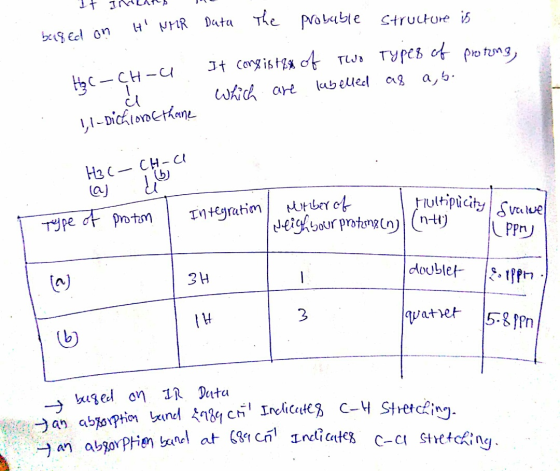 It
based on H' NMR Data The probable structure is
H3C – CH – Cl
Cl
1,1-Dichloroethane
It consists of Two Types of protons,
which are labelled as a, b.
H3C – CH – Cl
(a) Cl (b)
Type of Proton | Integration | Number of Neighbour protons (n) | Multiplicity (n-H) | δ value (ppm)
(a) | 3H | 1 | doublet | 2.1ppm.
(b) | 1H | 3 | quartet | 5.8 ppm
→ based on IR Data
→ an absorption band 2989 cm⁻¹ Indicates C–H Stretching.
→ an absorption band at 689 cm⁻¹ Indicates C–Cl Stretching.